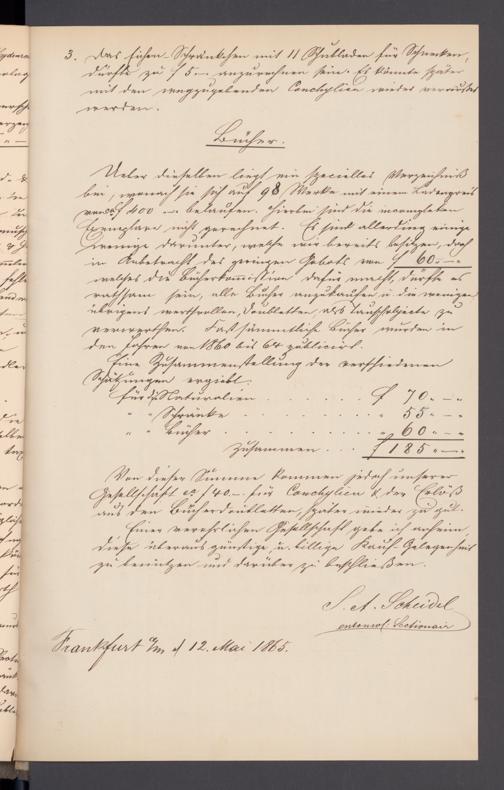 3. Das hohe Schränkchen mit 11 Schubladen für Schnecken,
dürfte zu f 5.— anzurechnen sein. Es könnte später
mit den wegzugebenden Conchylien wieder verkauft
werden.
Bücher.
Ueber dieselben liegt ein specielles Verzeichniß
bei, wonach sie sich auf 98 Werke mit einem Ladenpreis
von ca f 400 — belaufen. Hierbei sind die incompleten
Exemplare nicht gerechnet. Es sind allerdings einige
wenige darunter, welche wir bereits besitzen, doch
in Anbetracht des geringen Gebots von f 60.—
welches die Büchercommission dafür macht, dürfte es
rathsam sein, alle Bücher anzukaufen u. die wenigen
übrigens werthvollen Doubletten, als Tauschobjecte zu
verwerthen. Fast sämmtliche Bücher wurden in
den Jahren von 1860 bis 64 publicirt.
Eine Zusammenstellung der verschiedenen
Schätzungen ergibt:
Für die Naturalien . . . . . . . f 70.—.—
" " Schränke . . . . . . . . " 55.—.—
" " Bücher . . . . . . . . " 60.—.—
Zusammen . . . f 185.—.—
Von dieser Summe kommen jedoch unserer
Gesellschaft ca f 40.— für Conchylien & der Erlöß
aus den Bücherdoubletten, später wieder zu gut.
Einer verehrlichen Gesellschaft gebe ich anheim,
diese überaus günstige u. billige Kauf-Gelegenheit
zu benützen und darüber zu beschließen.
S. A. Scheidel
entomol. Sectionair
Frankfurt a/m d 12. Mai 1865.